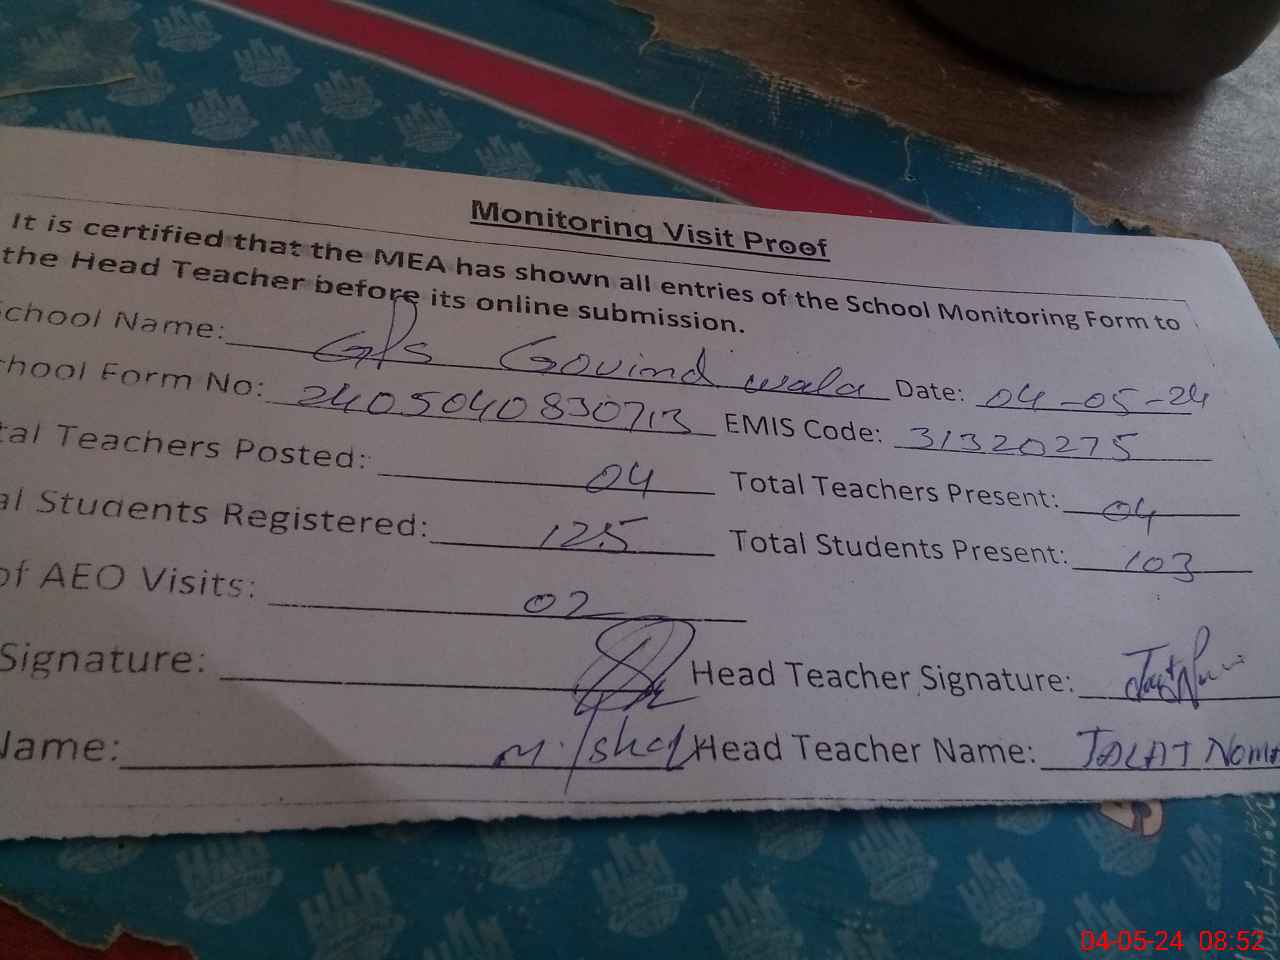 Monitoring Visit Proof
It is certified that the MEA has shown all entries of the School Monitoring Form to
the Head Teacher before its online submission.
chool Name: GPS Govind wala Date: 04-05-24
hool Form No: 2405040830713 EMIS Code: 31320275
tal Teachers Posted: 04 Total Teachers Present: 04
al Students Registered: 125 Total Students Present: 103
of AEO Visits: 02
Signature: Head Teacher Signature:
Name: Head Teacher Name: TALAT
04-05-24 08:52